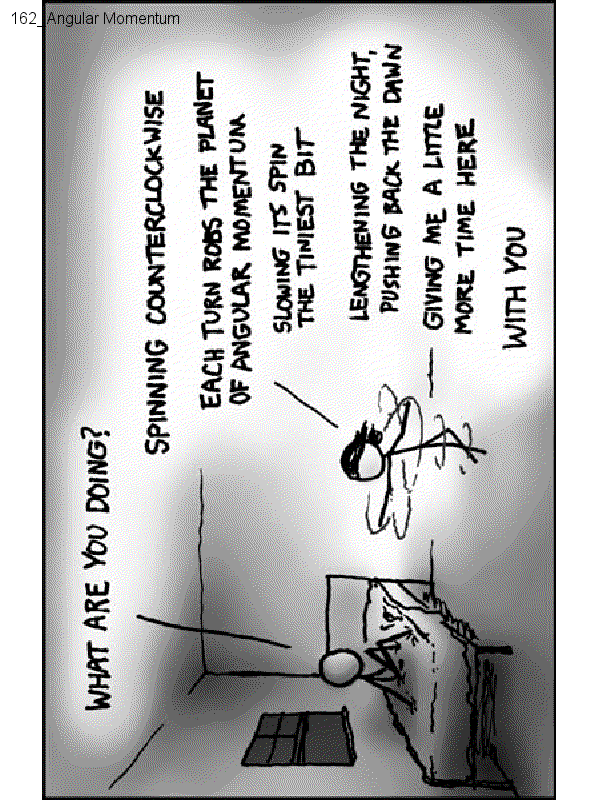 162_Angular Momentum
WHAT ARE YOU DOING?
SPINNING COUNTERCLOCKWISE
EACH TURN ROBS THE PLANET
OF ANGULAR MOMENTUM
SLOWING ITS SPIN
THE TINIEST BIT
LENGTHENING THE NIGHT,
PUSHING BACK THE DAWN
GIVING ME A LITTLE
MORE TIME HERE
WITH YOU